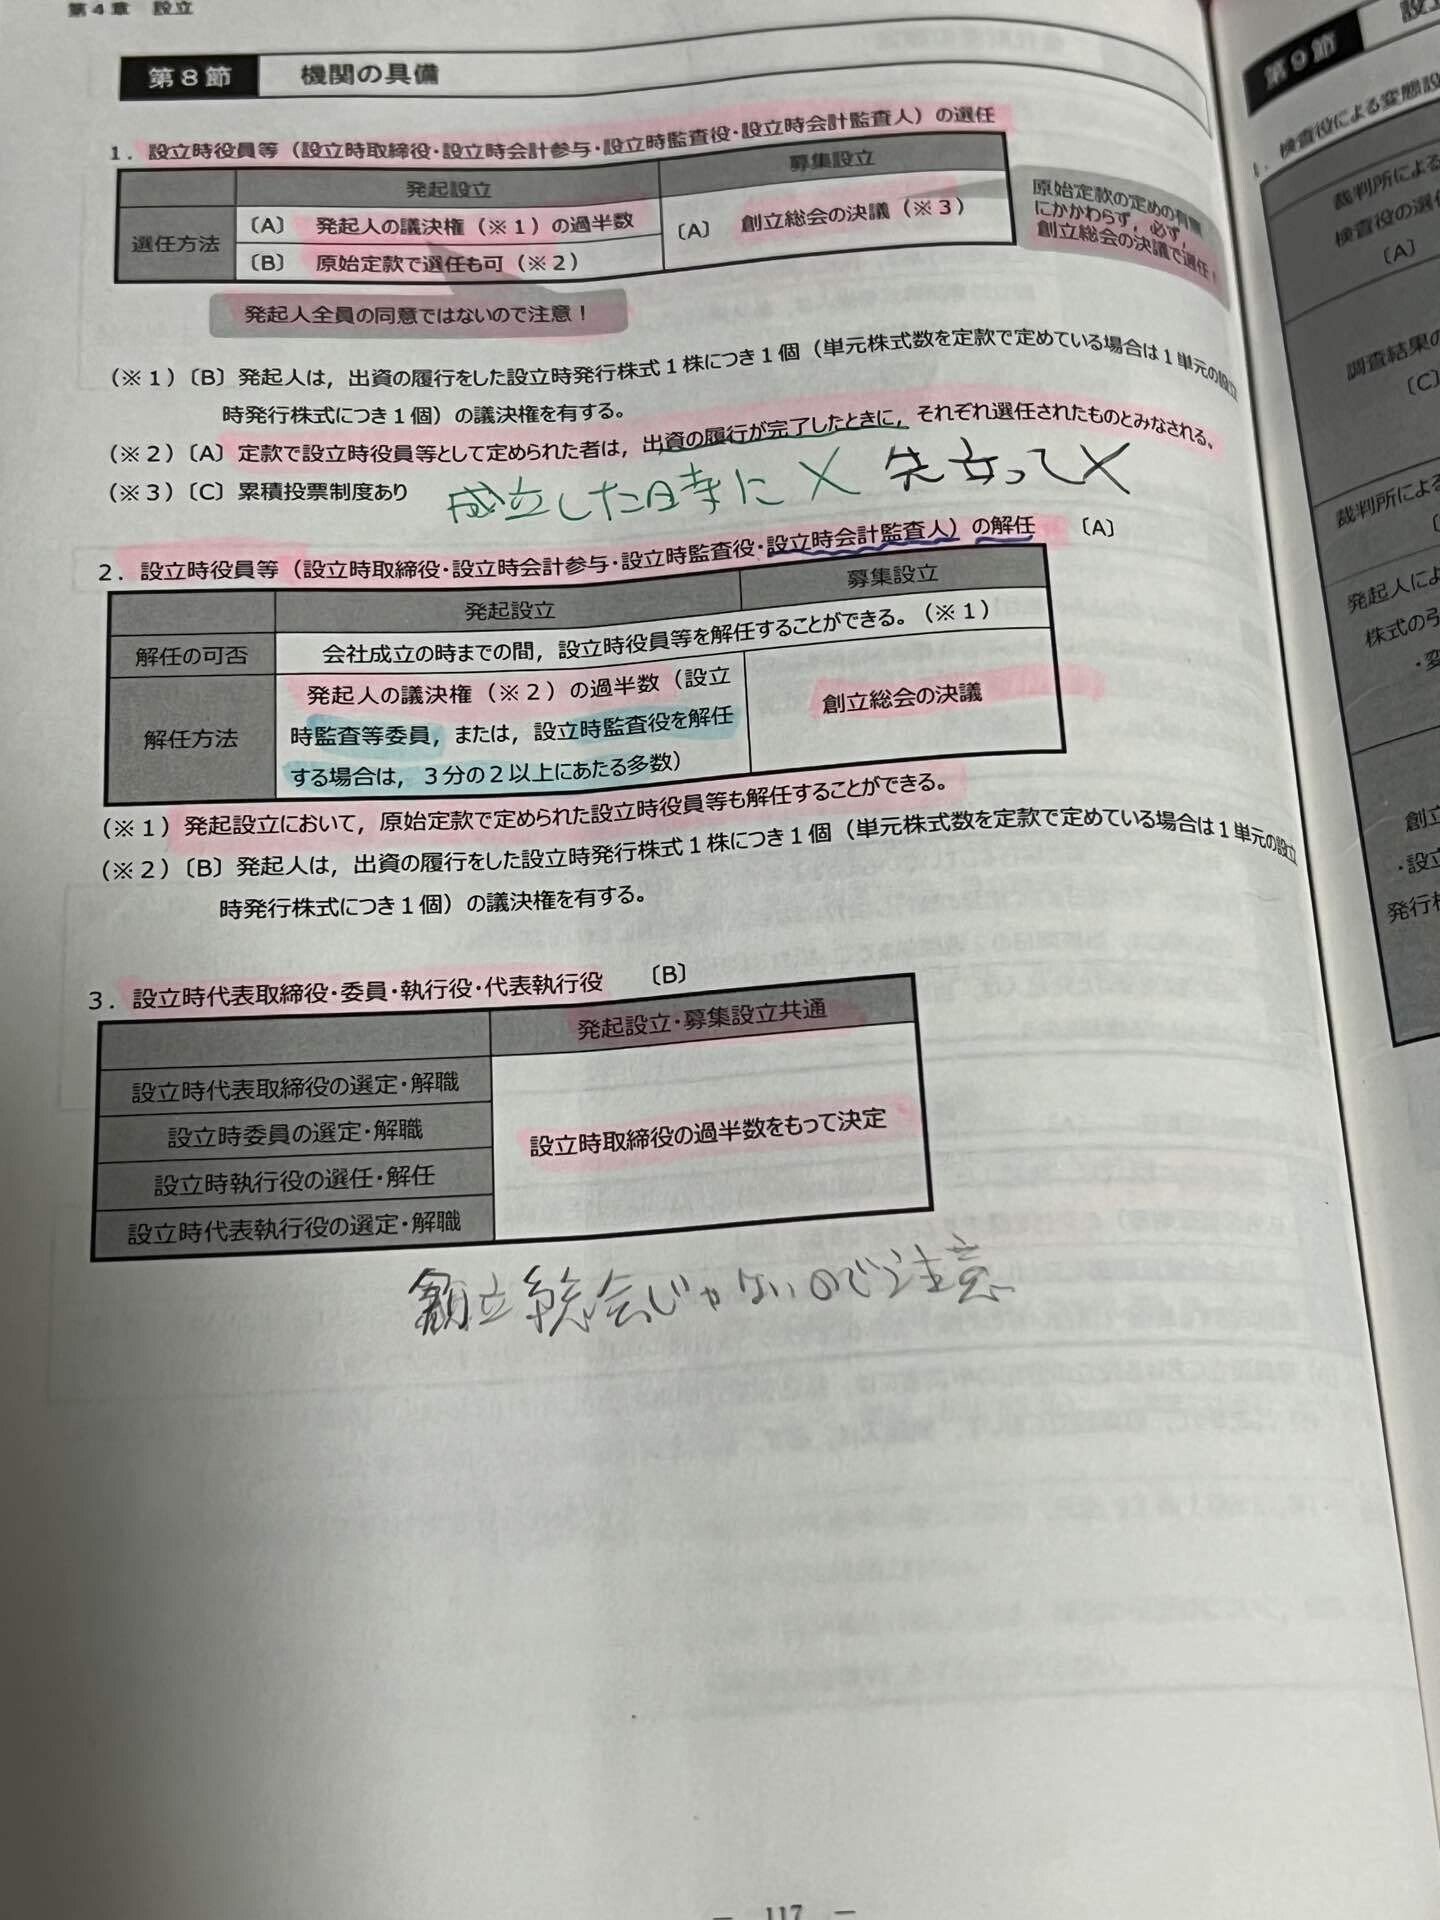 第4章 設立
第8節 機関の具備
1．設立時役員等（設立時取締役・設立時会計参与・設立時監査役・設立時会計監査人）の選任
発起設立 募集設立
選任方法 〔A〕 発起人の議決権（※1）の過半数 〔A〕 創立総会の決議（※3）
〔B〕 原始定款で選任も可（※2）
原始定款の定めの有無
にかかわらず，必ず，
創立総会の決議で選任！
発起人全員の同意ではないので注意！
（※1）〔B〕発起人は，出資の履行をした設立時発行株式1株につき1個（単元株式数を定款で定めている場合は1単元の設立
時発行株式につき1個）の議決権を有する。
（※2）〔A〕定款で設立時役員等として定められた者は，出資の履行が完了したときに，それぞれ選任されたものとみなされる。
（※3）〔C〕累積投票制度あり
成立した時に × 先立って×
2．設立時役員等（設立時取締役・設立時会計参与・設立時監査役・設立時会計監査人）の解任 〔A〕
発起設立 募集設立
解任の可否 会社成立の時までの間，設立時役員等を解任することができる。（※1）
解任方法 発起人の議決権（※2）の過半数（設立
時監査等委員，または，設立時監査役を解任
する場合は，3分の2以上にあたる多数） 創立総会の決議
（※1）発起設立において，原始定款で定められた設立時役員等も解任することができる。
（※2）〔B〕発起人は，出資の履行をした設立時発行株式1株につき1個（単元株式数を定款で定めている場合は1単元の設立
時発行株式につき1個）の議決権を有する。
3．設立時代表取締役・委員・執行役・代表執行役 〔B〕
発起設立・募集設立共通
設立時代表取締役の選定・解職
設立時委員の選定・解職
設立時取締役の過半数をもって決定
設立時執行役の選任・解任
設立時代表執行役の選定・解職
創立総会じゃないので注意
― 117 ―
第9節 設
検査役による変態設
裁判所による
検査役の選任
〔A〕
調査結果の
〔C〕
裁判所による
発起人によ
株式の引
創立
・設立
発行株